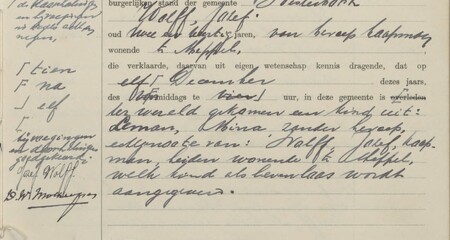 de doorhalingen
en bijvoegingen
burgerlijken stand der gemeente
Wolff, Josef,
oud twee en dertig jaren, van beroep koopman,
wonende te Meppel,
die verklaarde, daarvan uit eigen wetenschap kennis dragende, dat op
elf December dezes jaars,
des middags te vier uur, in deze gemeente is overleden
ter wereld gekomen een kind uit:
Leman, Mina, zonder beroep,
echtgenoote van: Wolff, Josef, koop-
man, beiden wonende te Meppel,
welk kind als levenloos wordt
aangegeven.
tien
na
elf
bijvoegingen
en doorhalingen
goedgekeurd
Jos Wolff